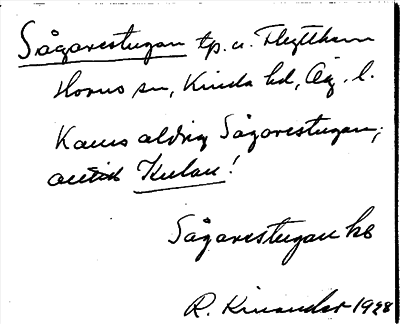 Sågarestugan tp. u. Flytthem
Horns sn, Kinda hd, Ög. l.
Kallas aldrig Sågarestugan,
alltid Kulan!
Sågarestugan hs
R. Kinander 1928